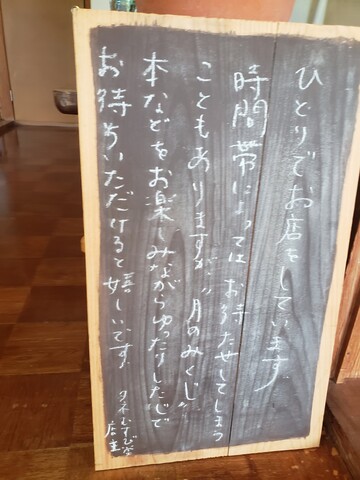 ひとりでお店をしています。
時間帯によっては お待たせしてしまう
こともありますが、"月のみくじ"
本などをお楽しみながらゆったりした心で
お待ちいただけると嬉しいです。
店主